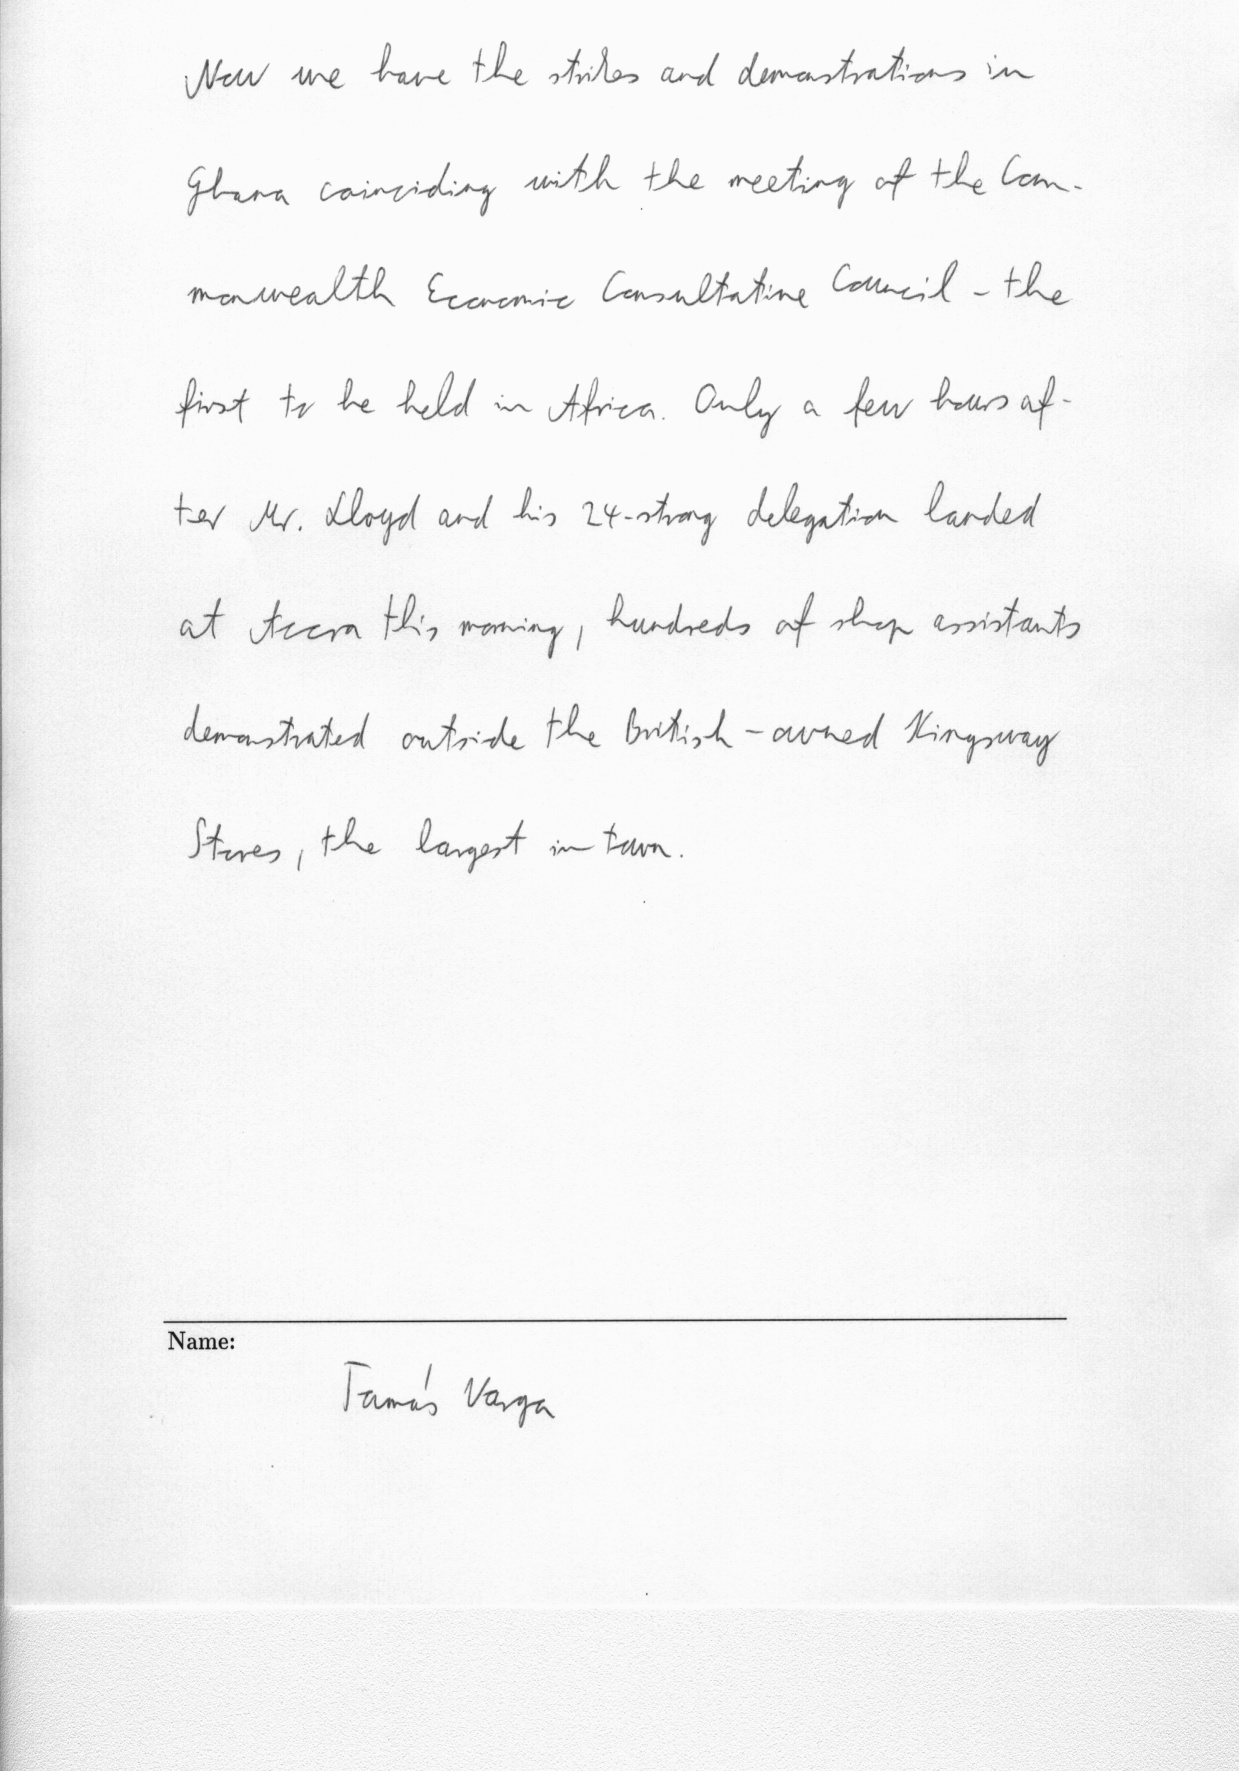 Now we have the strikes and demonstrations in
Ghana coinciding with the meeting of the Com-
monwealth Economic Consultative Council - the
first to be held in Africa. Only a few hours af-
ter Mr. Lloyd and his 24-strong delegation landed
at Accra this morning, hundreds of shop assistants
demonstrated outside the British-owned Kingsway
Stores, the largest in town.
Name:
Tamás Varga